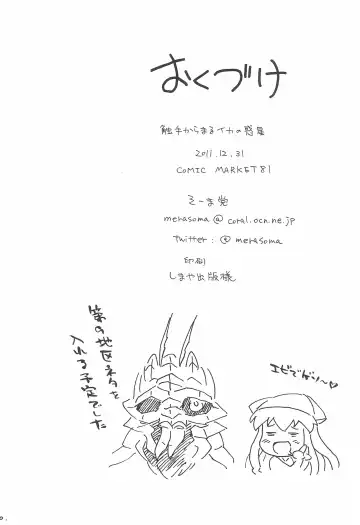 おくづけ
触手からまるイカの惑星
2011.12.31
COMIC MARKET81
そーま党
merasoma@coral.ocn.ne.jp
Twitter:@merasoma
印刷
しまや出版様
第9地区ネタを
入れる予定でした
エビでゲソ〜♡